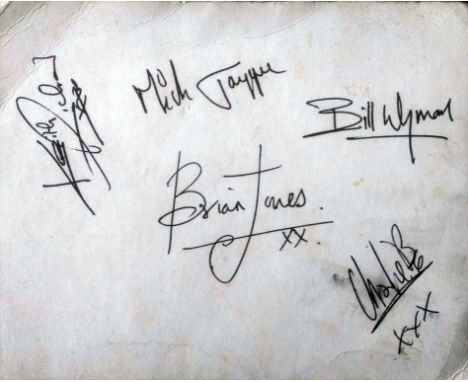 Keith Richard
Mick Jagger
Bill Wyman
Brian Jones.
xx.
Charlie B
xxx